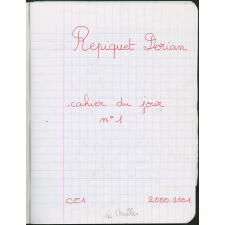 Repiquet Dorian
cahier du jour
n°1
CE1 2000.2001